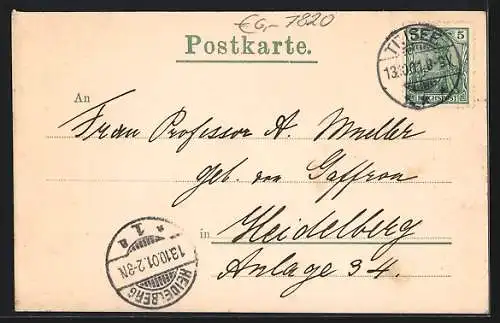 €6,- 7820
Postkarte.
TITISEE
13.10.01.8-9V
5
An
Frau Professor A. Mueller
geb. von Gaffron
in Heidelberg
Anlage 34.
HEIDELBERG
13.10.01.2-3N
* 1. a